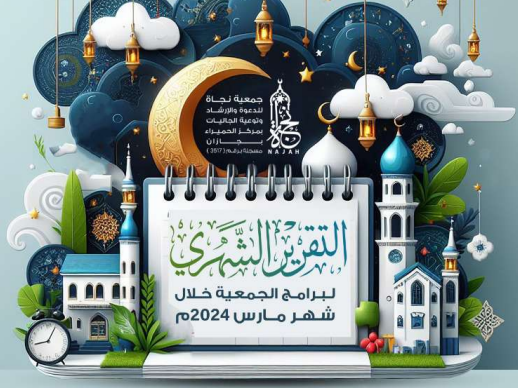 جمعية نجاة
للدعوة والإرشاد
وتوعية الجاليات
بمركز الحميراء
بجازان
مسجلة برقم ( 3617 )
نجاة
NAJAH
التقرير الشهري
لبرامج الجمعية خلال
شهر مارس 2024م